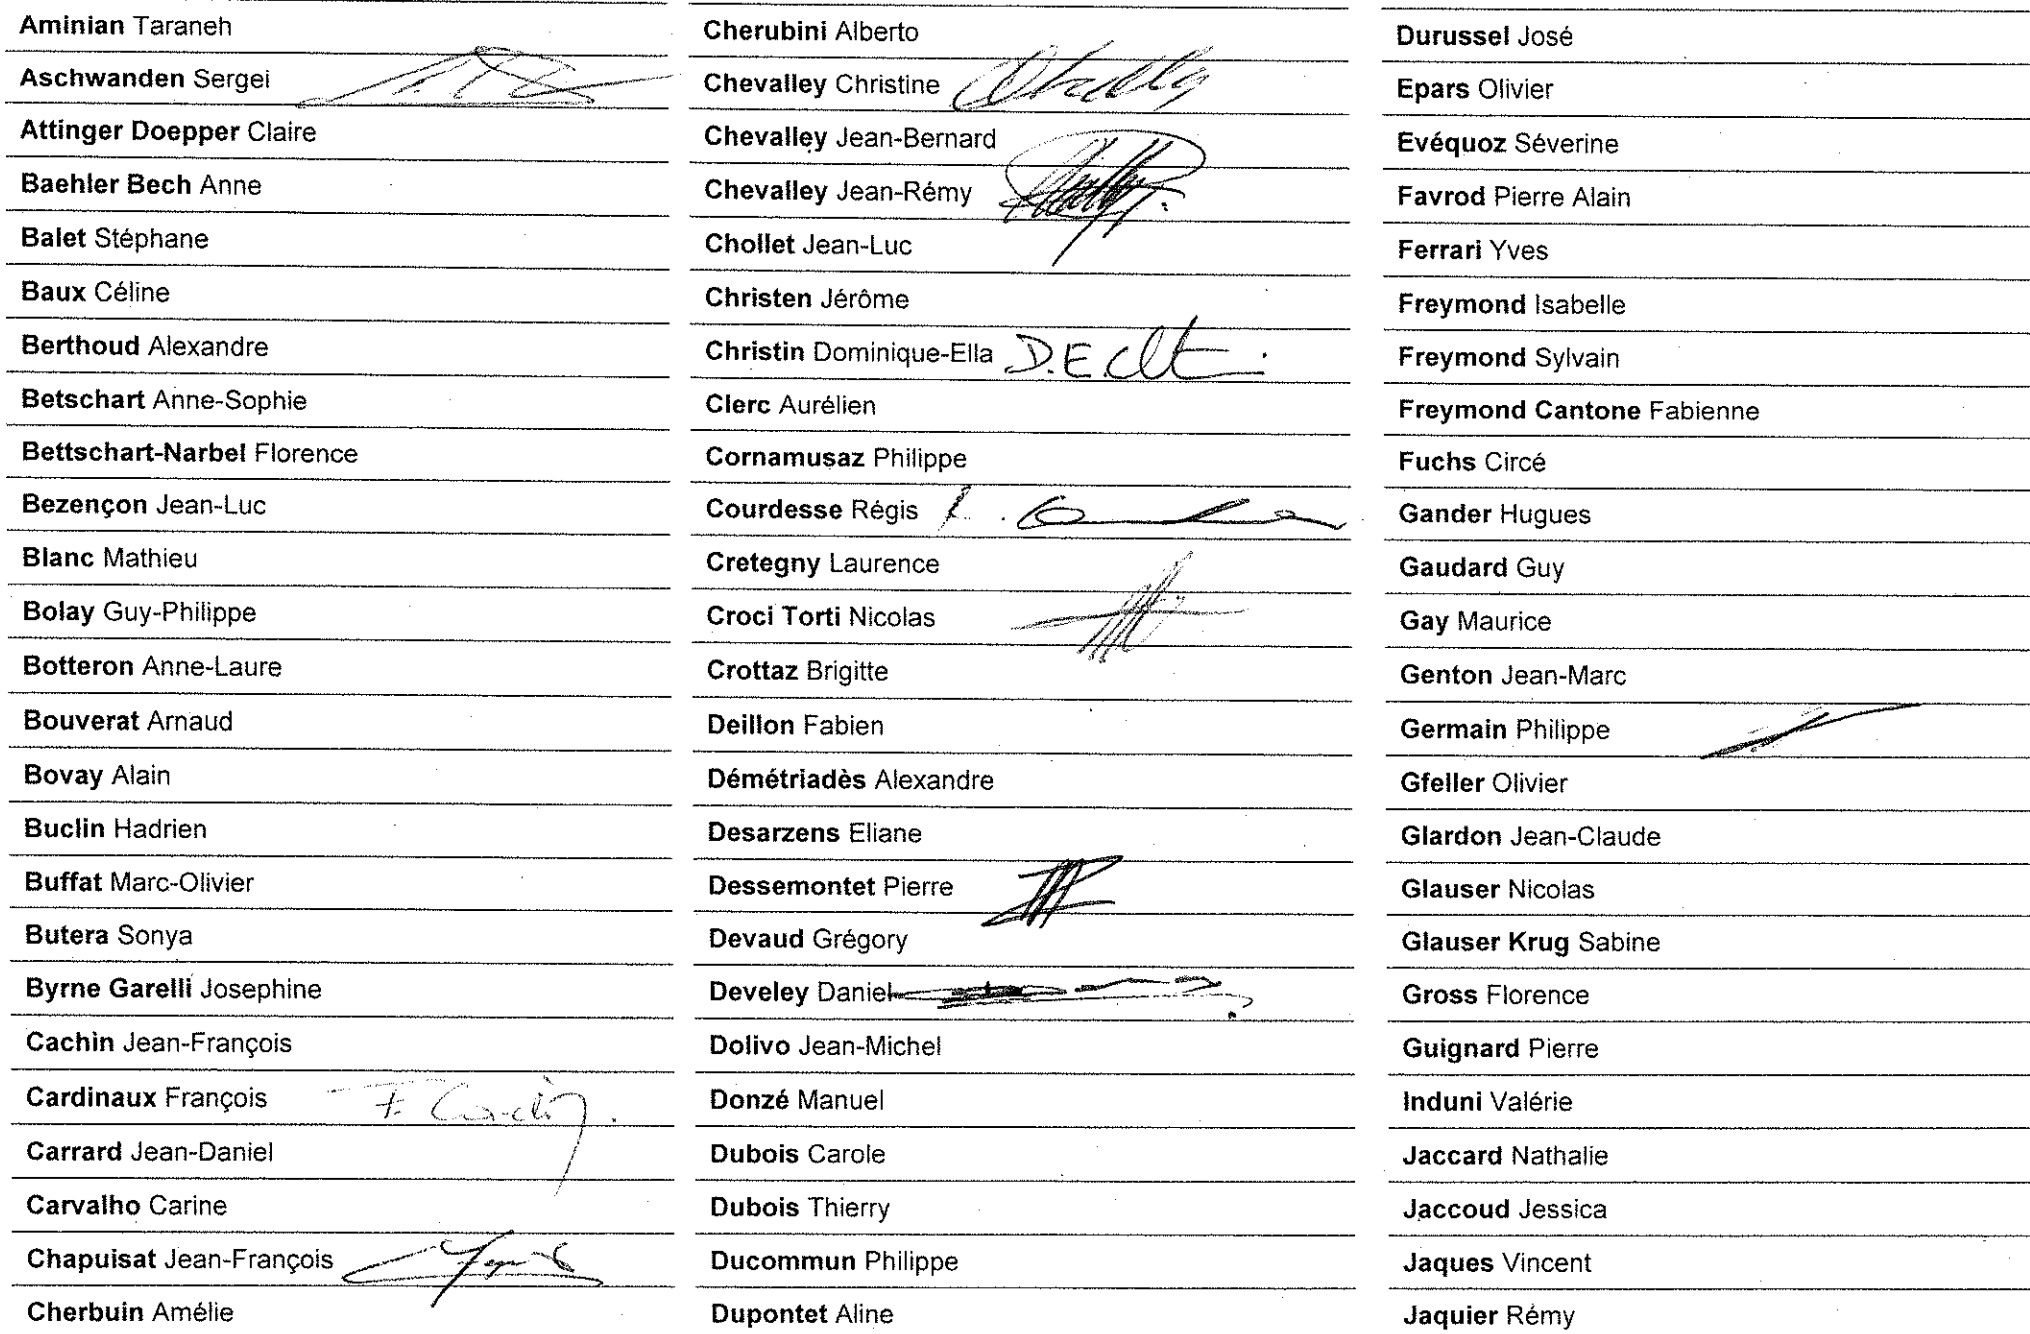 Aminian Taraneh
Aschwanden Sergei
Attinger Doepper Claire
Baehler Bech Anne
Balet Stéphane
Baux Céline
Berthoud Alexandre
Betschart Anne-Sophie
Bettschart-Narbel Florence
Bezençon Jean-Luc
Blanc Mathieu
Bolay Guy-Philippe
Botteron Anne-Laure
Bouverat Arnaud
Bovay Alain
Buclin Hadrien
Buffat Marc-Olivier
Butera Sonya
Byrne Garelli Josephine
Cachin Jean-François
Cardinaux François
Carrard Jean-Daniel
Carvalho Carine
Chapuisat Jean-François
Cherbuin Amélie
Cherubini Alberto
Chevalley Christine
Chevalley Jean-Bernard
Chevalley Jean-Rémy
Chollet Jean-Luc
Christen Jérôme
Christin Dominique-Ella D.E.
Clerc Aurélien
Cornamusaz Philippe
Courdesse Régis
Cretegny Laurence
Croci Torti Nicolas
Crottaz Brigitte
Deillon Fabien
Démétriadès Alexandre
Desarzens Eliane
Dessemontet Pierre
Devaud Grégory
Develey Daniel
Dolivo Jean-Michel
Donzé Manuel
Dubois Carole
Dubois Thierry
Ducommun Philippe
Dupontet Aline
Durussel José
Epars Olivier
Evéquoz Séverine
Favrod Pierre Alain
Ferrari Yves
Freymond Isabelle
Freymond Sylvain
Freymond Cantone Fabienne
Fuchs Circé
Gander Hugues
Gaudard Guy
Gay Maurice
Genton Jean-Marc
Germain Philippe
Gfeller Olivier
Glardon Jean-Claude
Glauser Nicolas
Glauser Krug Sabine
Gross Florence
Guignard Pierre
Induni Valérie
Jaccard Nathalie
Jaccoud Jessica
Jaques Vincent
Jaquier Rémy